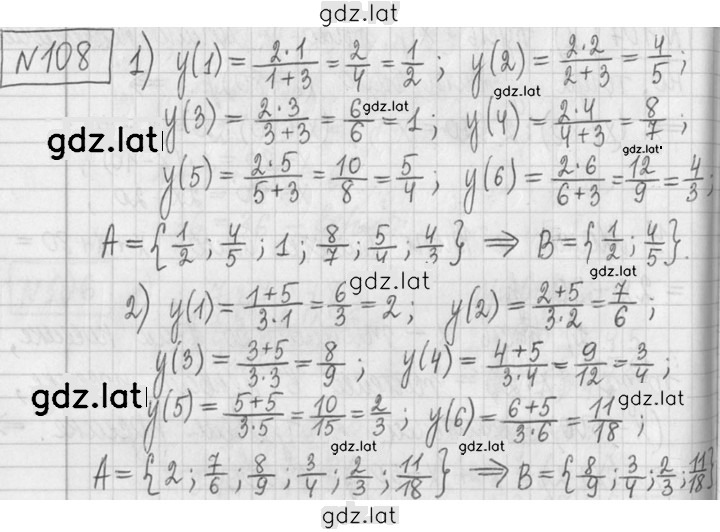 gdz.lat
№108 1) y(1) = 2·1/1+3 = 2/4 = 1/2 ; y(2) = 2·2/2+3 = 4/5 ;
gdz.lat
gdz.lat
y(3) = 2·3/3+3 = 6/6 = 1 ; y(4) = 2·4/4+3 = 8/7 ;
gdz.lat
gdz.lat
y(5) = 2·5/5+3 = 10/8 = 5/4 ; y(6) = 2·6/6+3 = 12/9 = 4/3 ;
A = { 1/2 ; 4/5 ; 1 ; 8/7 ; 5/4 ; 4/3 } ⇒ B = { 1/2 ; 4/5 }.
gdz.lat
gdz.lat
2) y(1) = 1+5/3·1 = 6/3 = 2 ; y(2) = 2+5/3·2 = 7/6 ;
y(3) = 3+5/3·3 = 8/9 ; y(4) = 4+5/3·4 = 9/12 = 3/4 ;
gdz.lat
gdz.lat
y(5) = 5+5/3·5 = 10/15 = 2/3 ; y(6) = 6+5/3·6 = 11/18 ;
gdz.lat
gdz.lat
A = { 2 ; 7/6 ; 8/9 ; 3/4 ; 2/3 ; 11/18 } ⇒ B = { 8/9 ; 3/4 ; 2/3 ; 11/18 }
gdz.lat